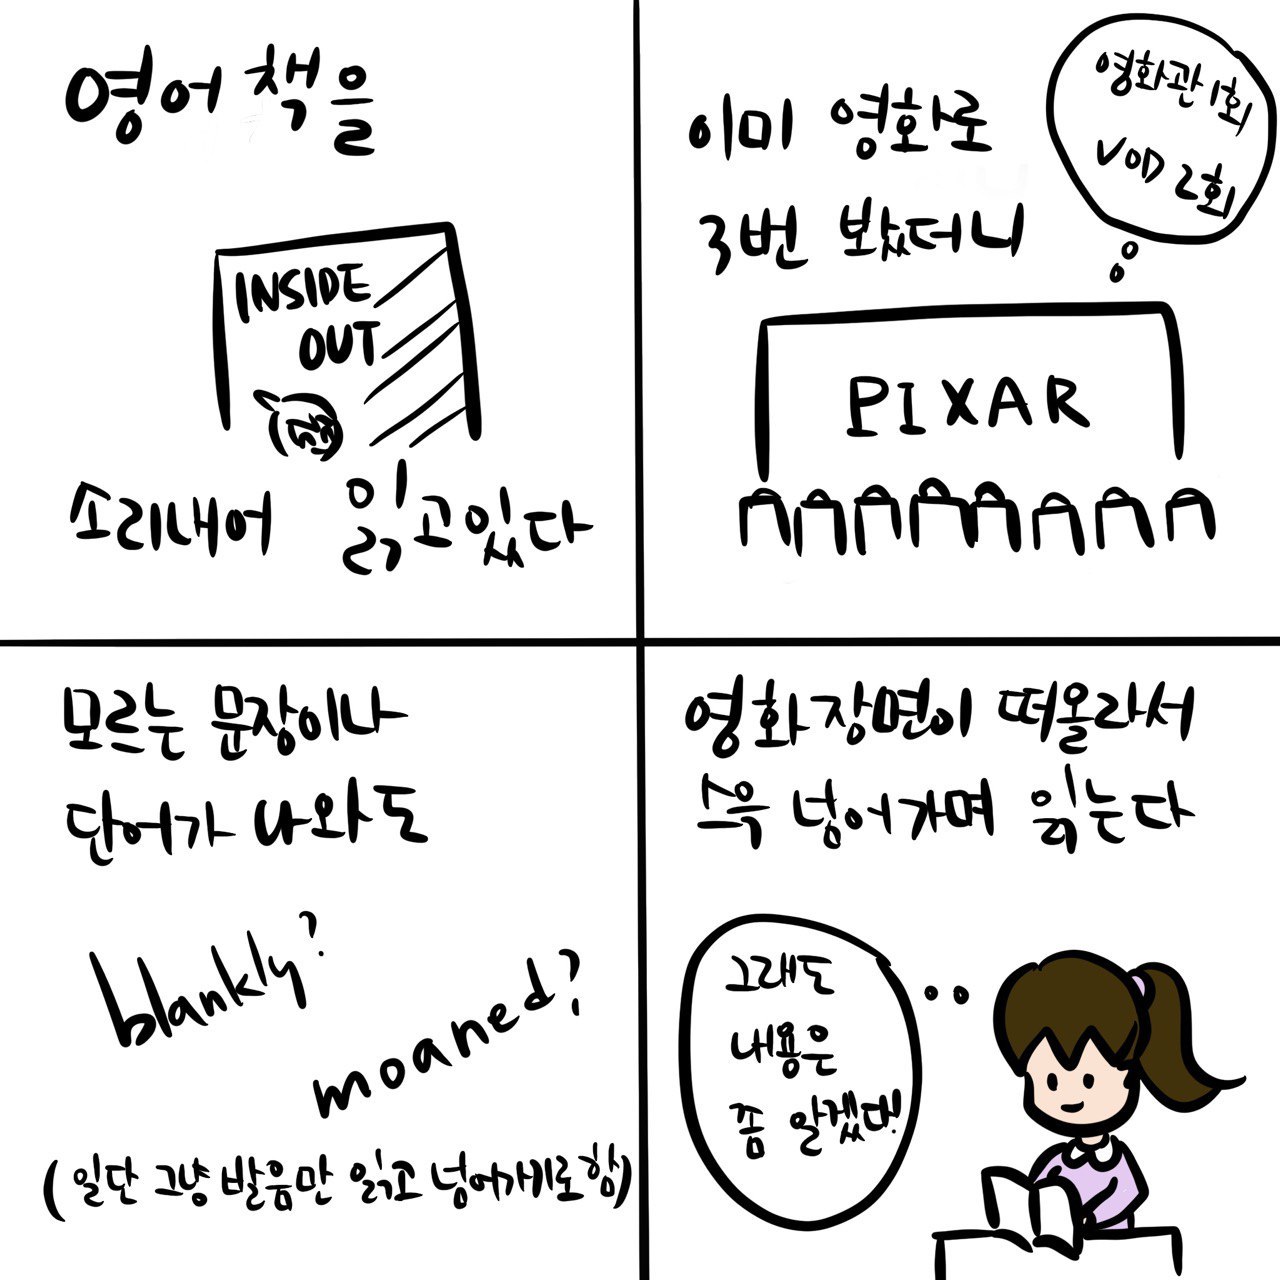 영어 책을
INSIDE
OUT
소리내어 읽고있다
영화관 1회
VOD 2회
이미 영화로
3번 봤더니
PIXAR
모르는 문장이나
단어가 나와도
blankly?
moaned?
(일단 그냥 발음만 읽고 넘어가기로 함)
영화 장면이 떠올라서
스윽 넘어가며 읽는다
그래도
내용은
좀 알겠다!